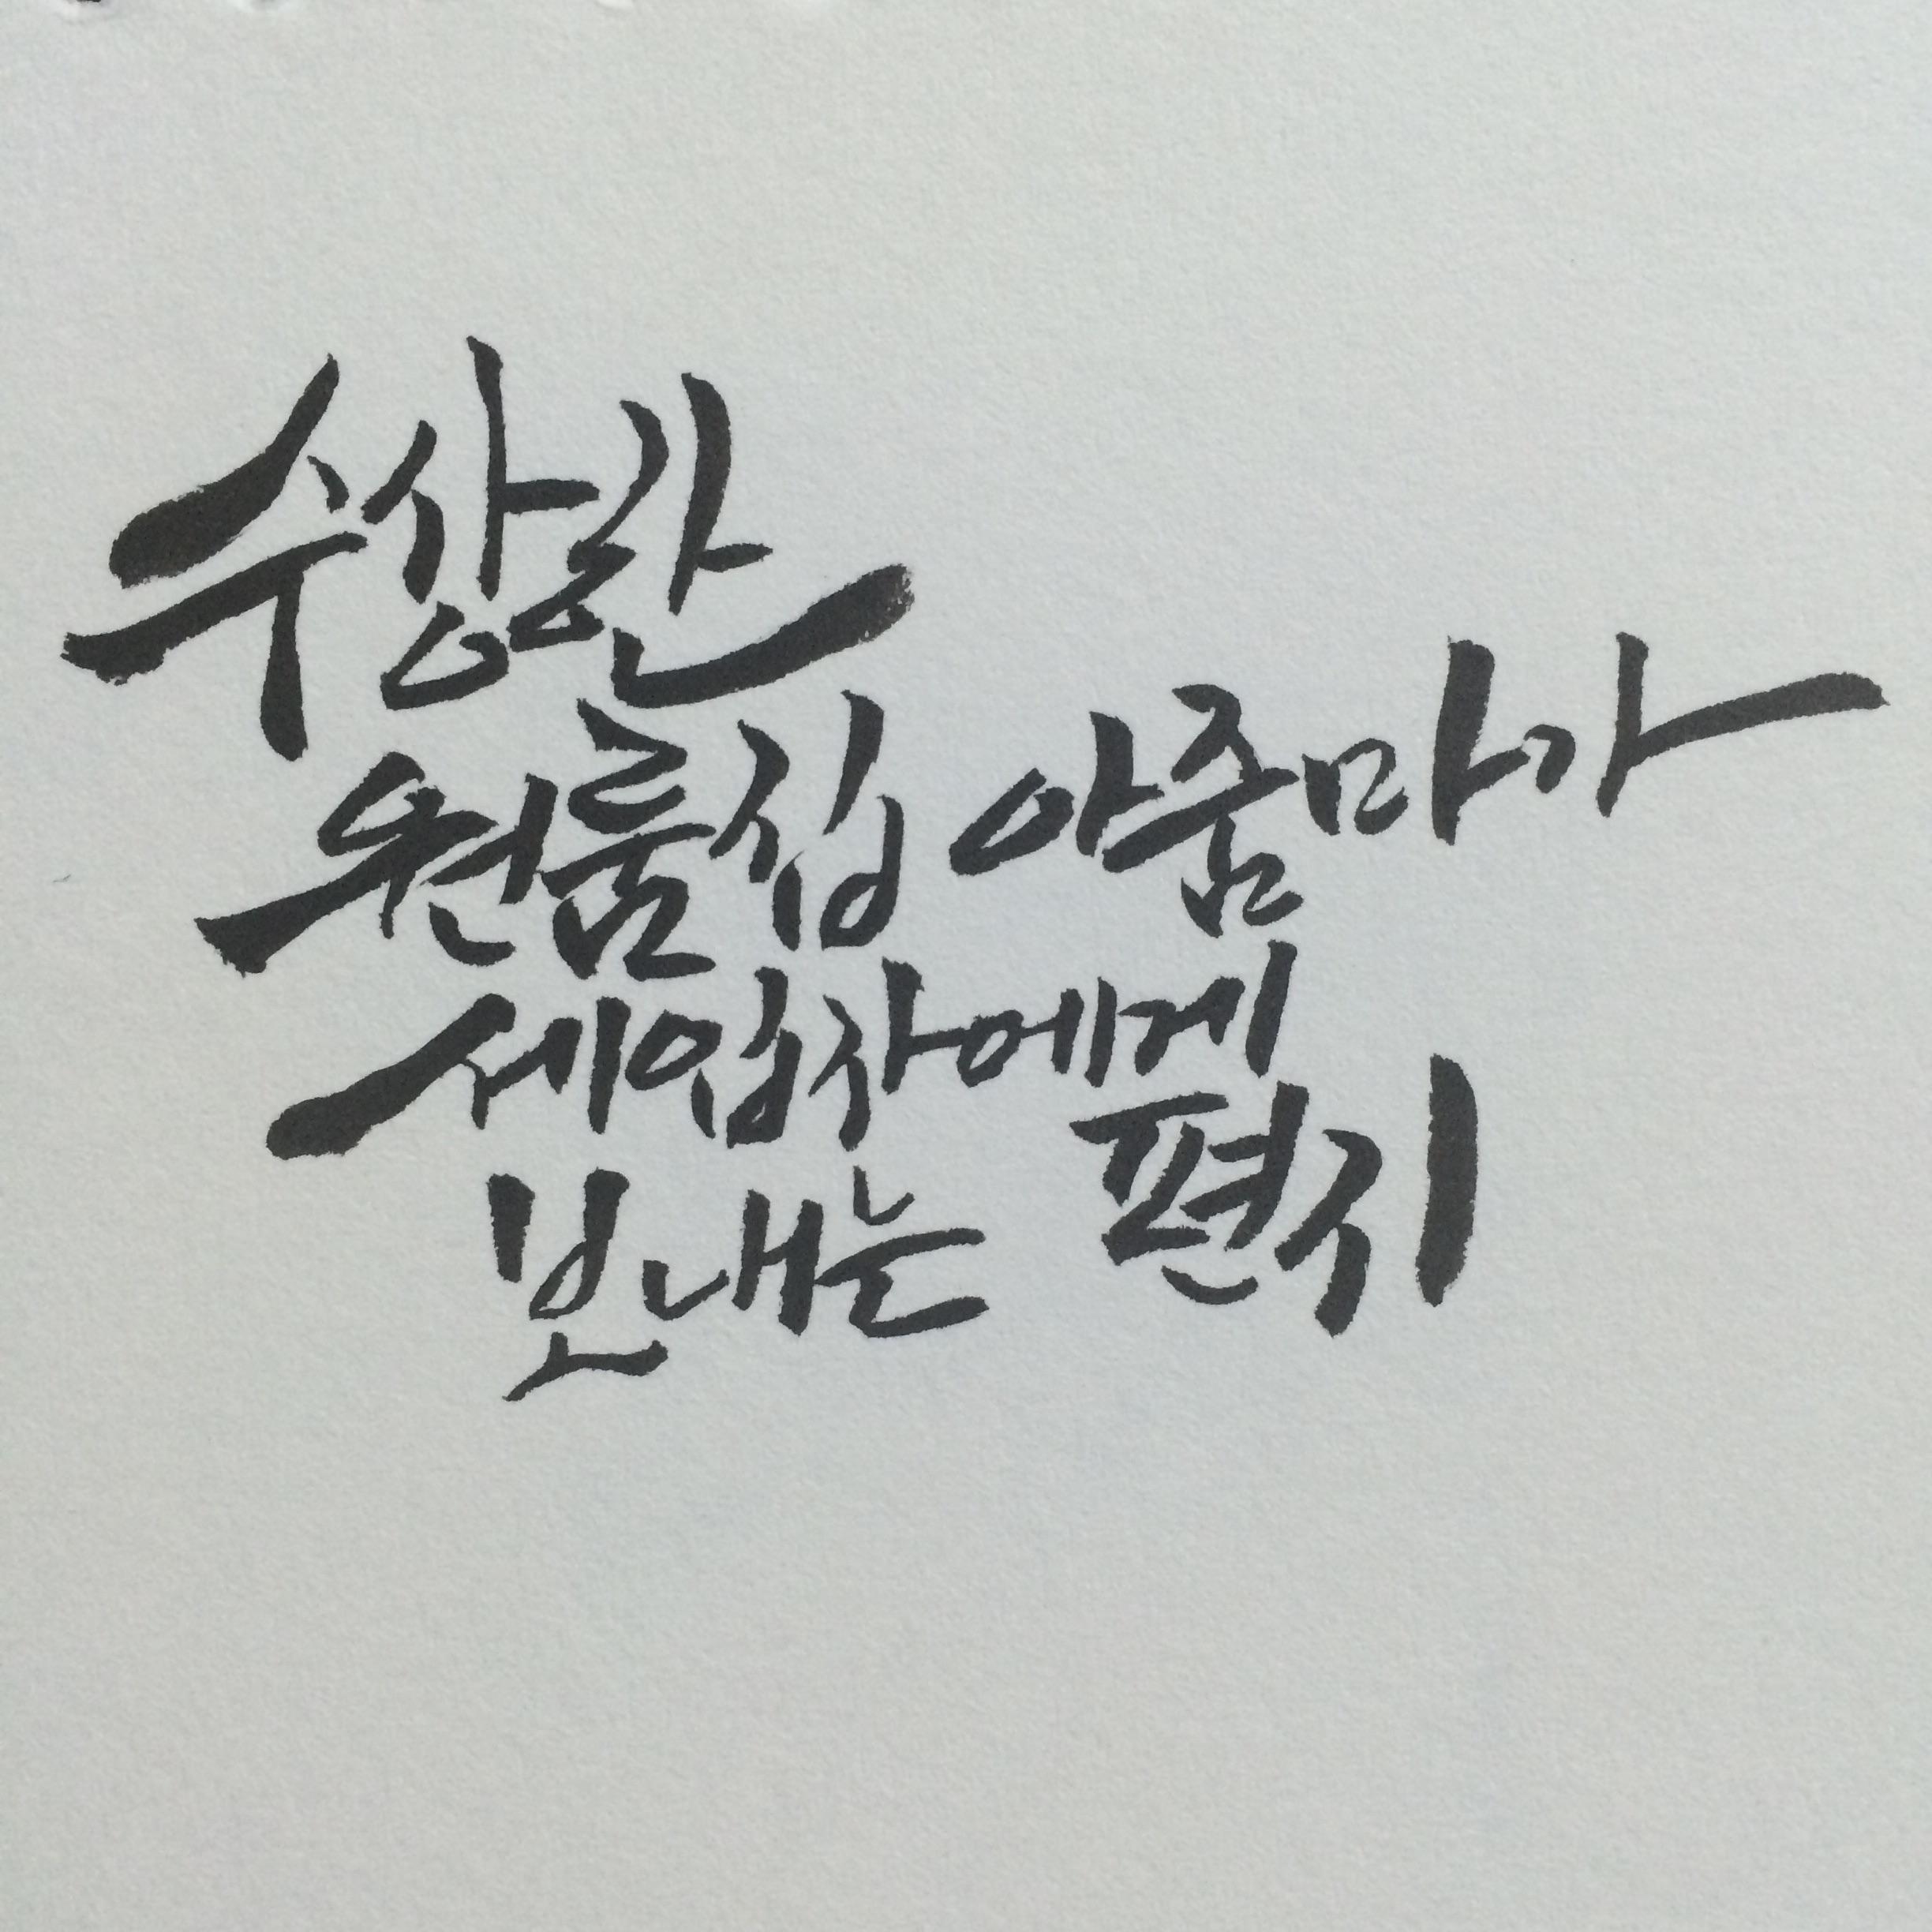 수상한
원룸집 아줌마가
세입자에게
보내는 편지